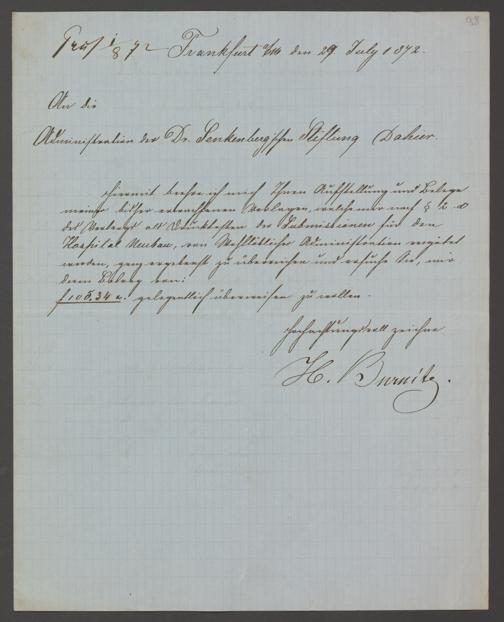 98
Präs 1/8 72 Frankfurt a/M den 29 July 1872.
An die
Administration der Dr. Senkenberg'schen Stiftung Dahier.
Hiermit beehre ich mich Ihnen Aufstellung und Belege
meiner bisher erwachsenen Verlagen, welche mir nach § 2 d
des Vertrags als Druckkosten der Submissionen für den
Hospital Neubau, von Wohllöblicher Administration vergütet
werden, ganz ergebenst zu überreichen und ersuche Sie, mir
deren Betrag von:
f 105.34 x. gelegentlich überweisen zu wollen.
Hochachtungsvoll zeichne
H. Burnitz.